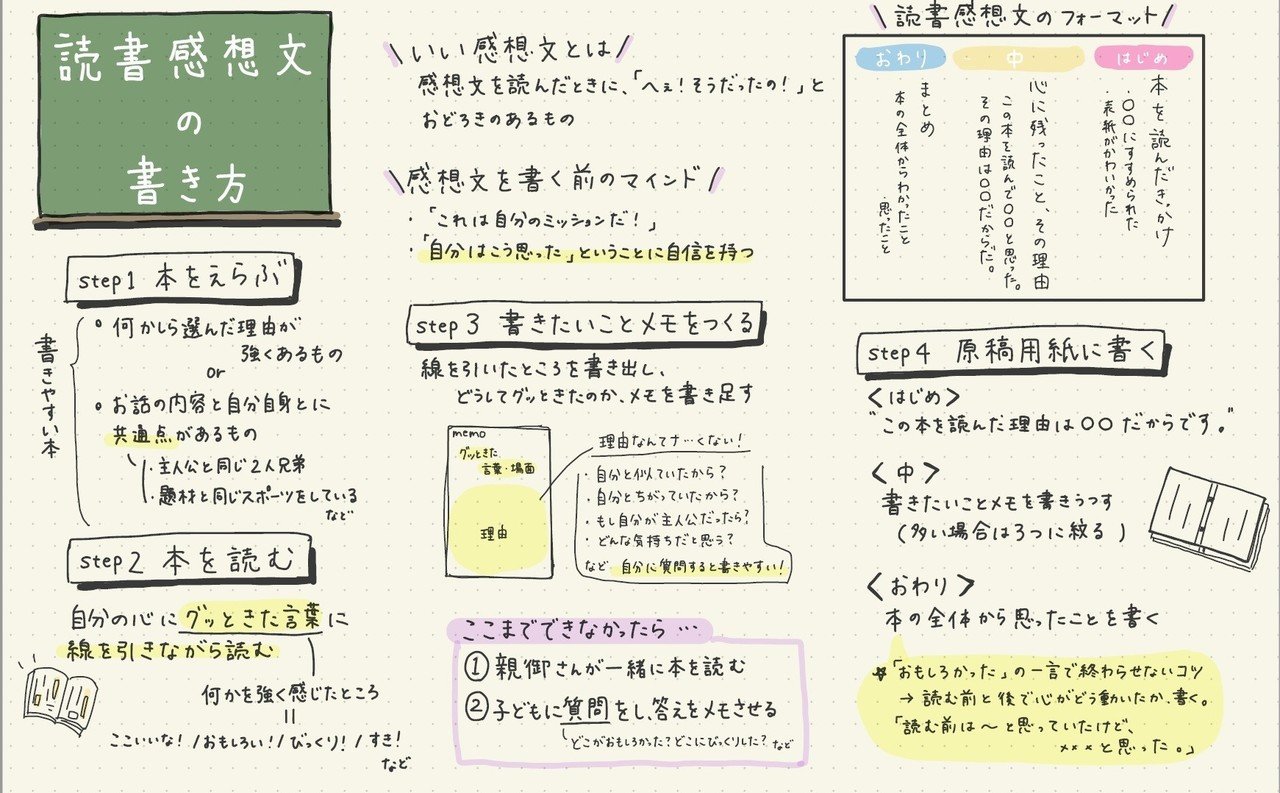 読書感想文
の
書き方
step1 本をえらぶ
書きやすい本
何かしら選んだ理由が
強くあるもの
or
お話の内容と自分自身とに
共通点があるもの
・主人公と同じ2人兄弟
・題材と同じスポーツをしている
など
step2 本を読む
自分の心にグッときた言葉に
線を引きながら読む
何かを強く感じたところ
=
ここいいな!/おもしろい!/びっくり!/すき!
など
\いい感想文とは/
感想文を読んだときに、「へぇ!そうだったの!」と
おどろきのあるもの
\感想文を書く前のマインド/
・「これは自分のミッションだ!」
・「自分はこう思った」ということに自信を持つ
step3 書きたいことメモをつくる
線を引いたところを書き出し、
どうしてグッときたのか、メモを書き足す
memo
グッときた
言葉・場面
理由
理由なんてナ…くない!
・自分と似ていたから?
・自分とちがっていたから?
・もし自分が主人公だったら?
・どんな気持ちだと思う?
など 自分に質問すると書きやすい!
ここまでできなかったら…
① 親御さんが一緒に本を読む
② 子どもに質問をし、答えをメモさせる
どこがおもしろかった?どこにびっくりした? など
\読書感想文のフォーマット/
はじめ
本を読んだきっかけ
・〇〇にすすめられた
・表紙がかわいかった
中
心に残ったこと、その理由
この本を読んで〇〇と思った。
その理由は〇〇だからだ。
おわり
まとめ
本の全体からわかったこと
・思ったこと
step4 原稿用紙に書く
<はじめ>
"この本を読んだ理由は〇〇だからです。"
<中>
書きたいことメモを書きうつす
(多い場合は3つに絞る)
<おわり>
本の全体から思ったことを書く
☆「おもしろかった」の一言で終わらせないコツ
→読む前と後で心がどう動いたか、書く。
「読む前は〜と思っていたけど、
×××と思った。」